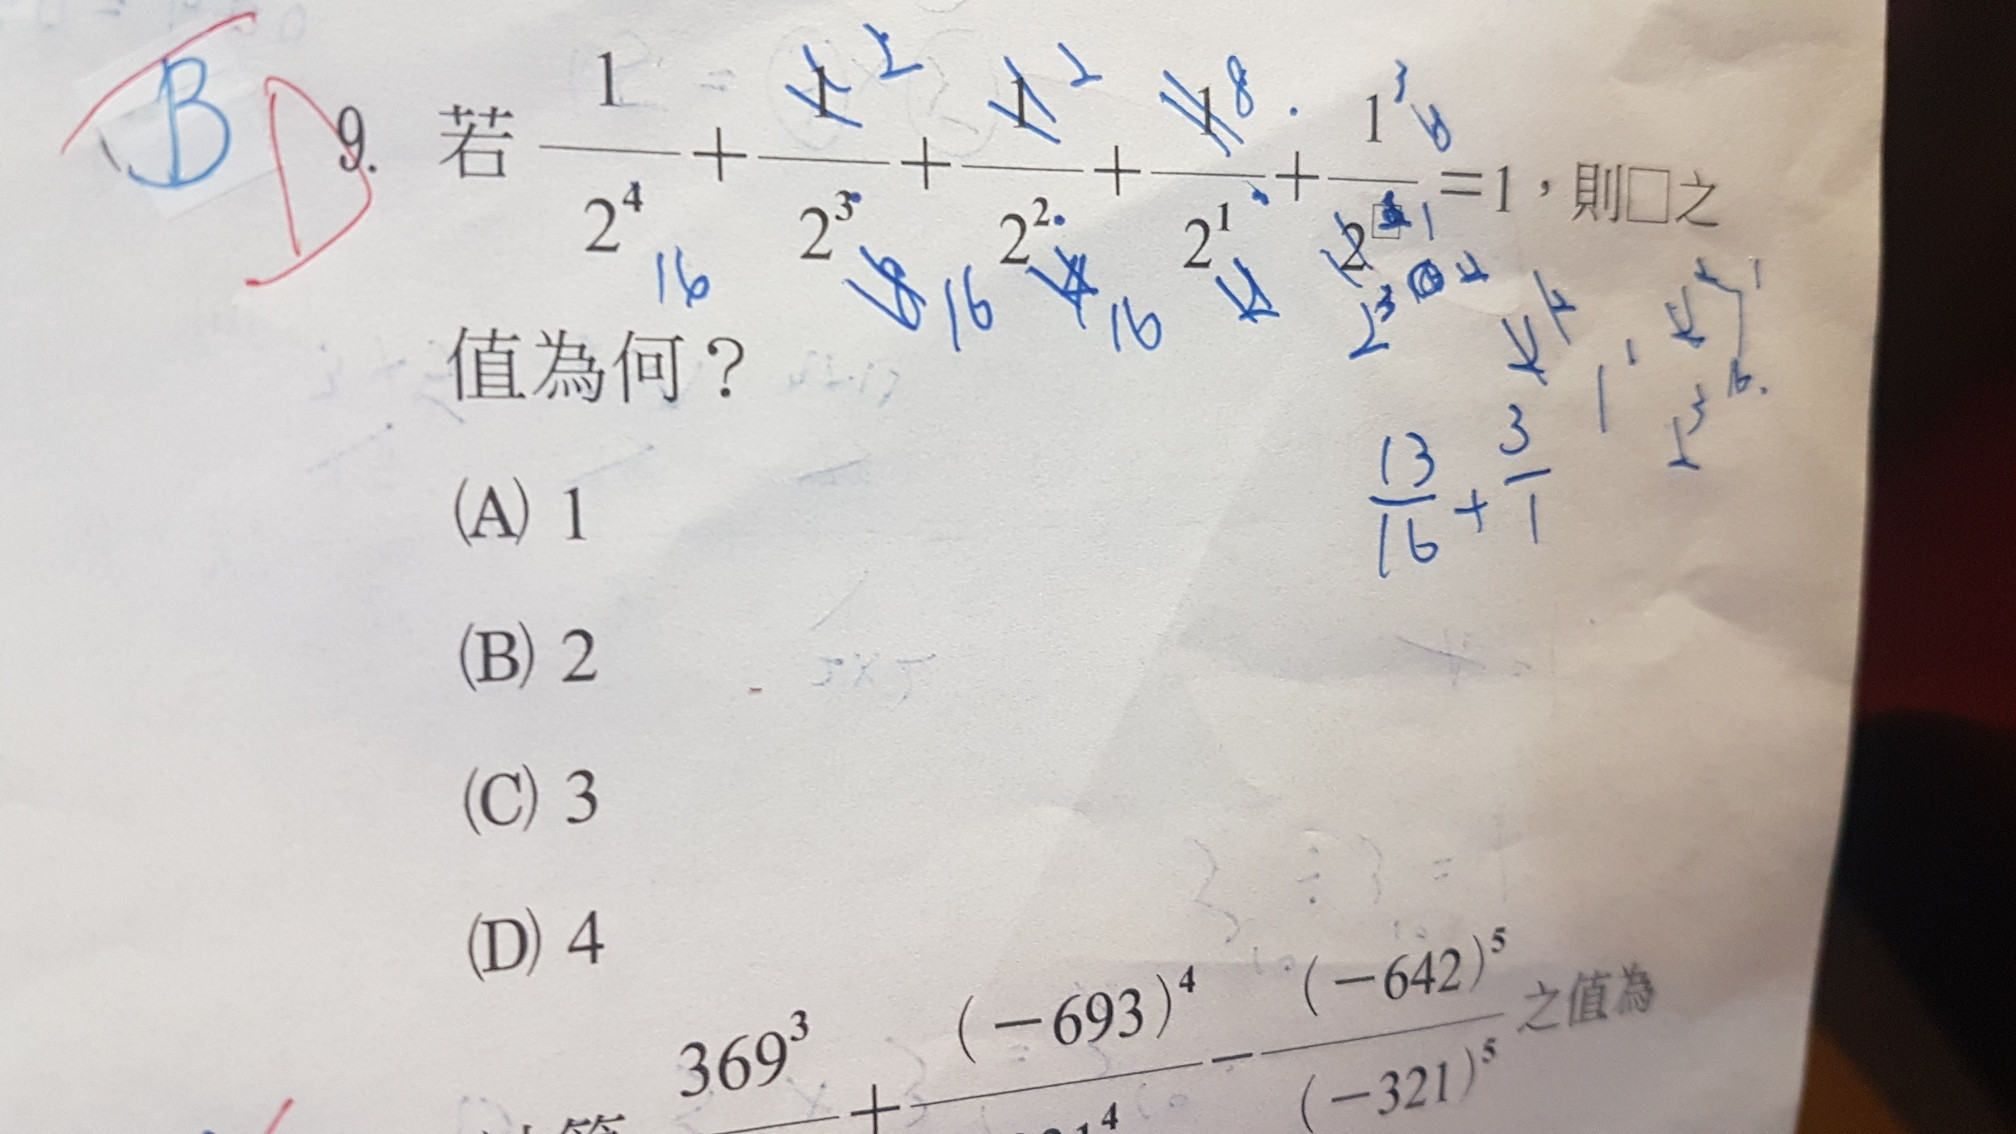 B D
9. 若 1/2⁴ + 1/2³ + 1/2² + 1/2¹ + 1/2^□ = 1，則□之
2 2 8 3
16 8 16 4 16
值為何？
13/16 + 3/1
(A) 1
(B) 2
(C) 3
(D) 4
369³ + (−693)⁴ − (−642)⁵/(−321)⁵ 之值為